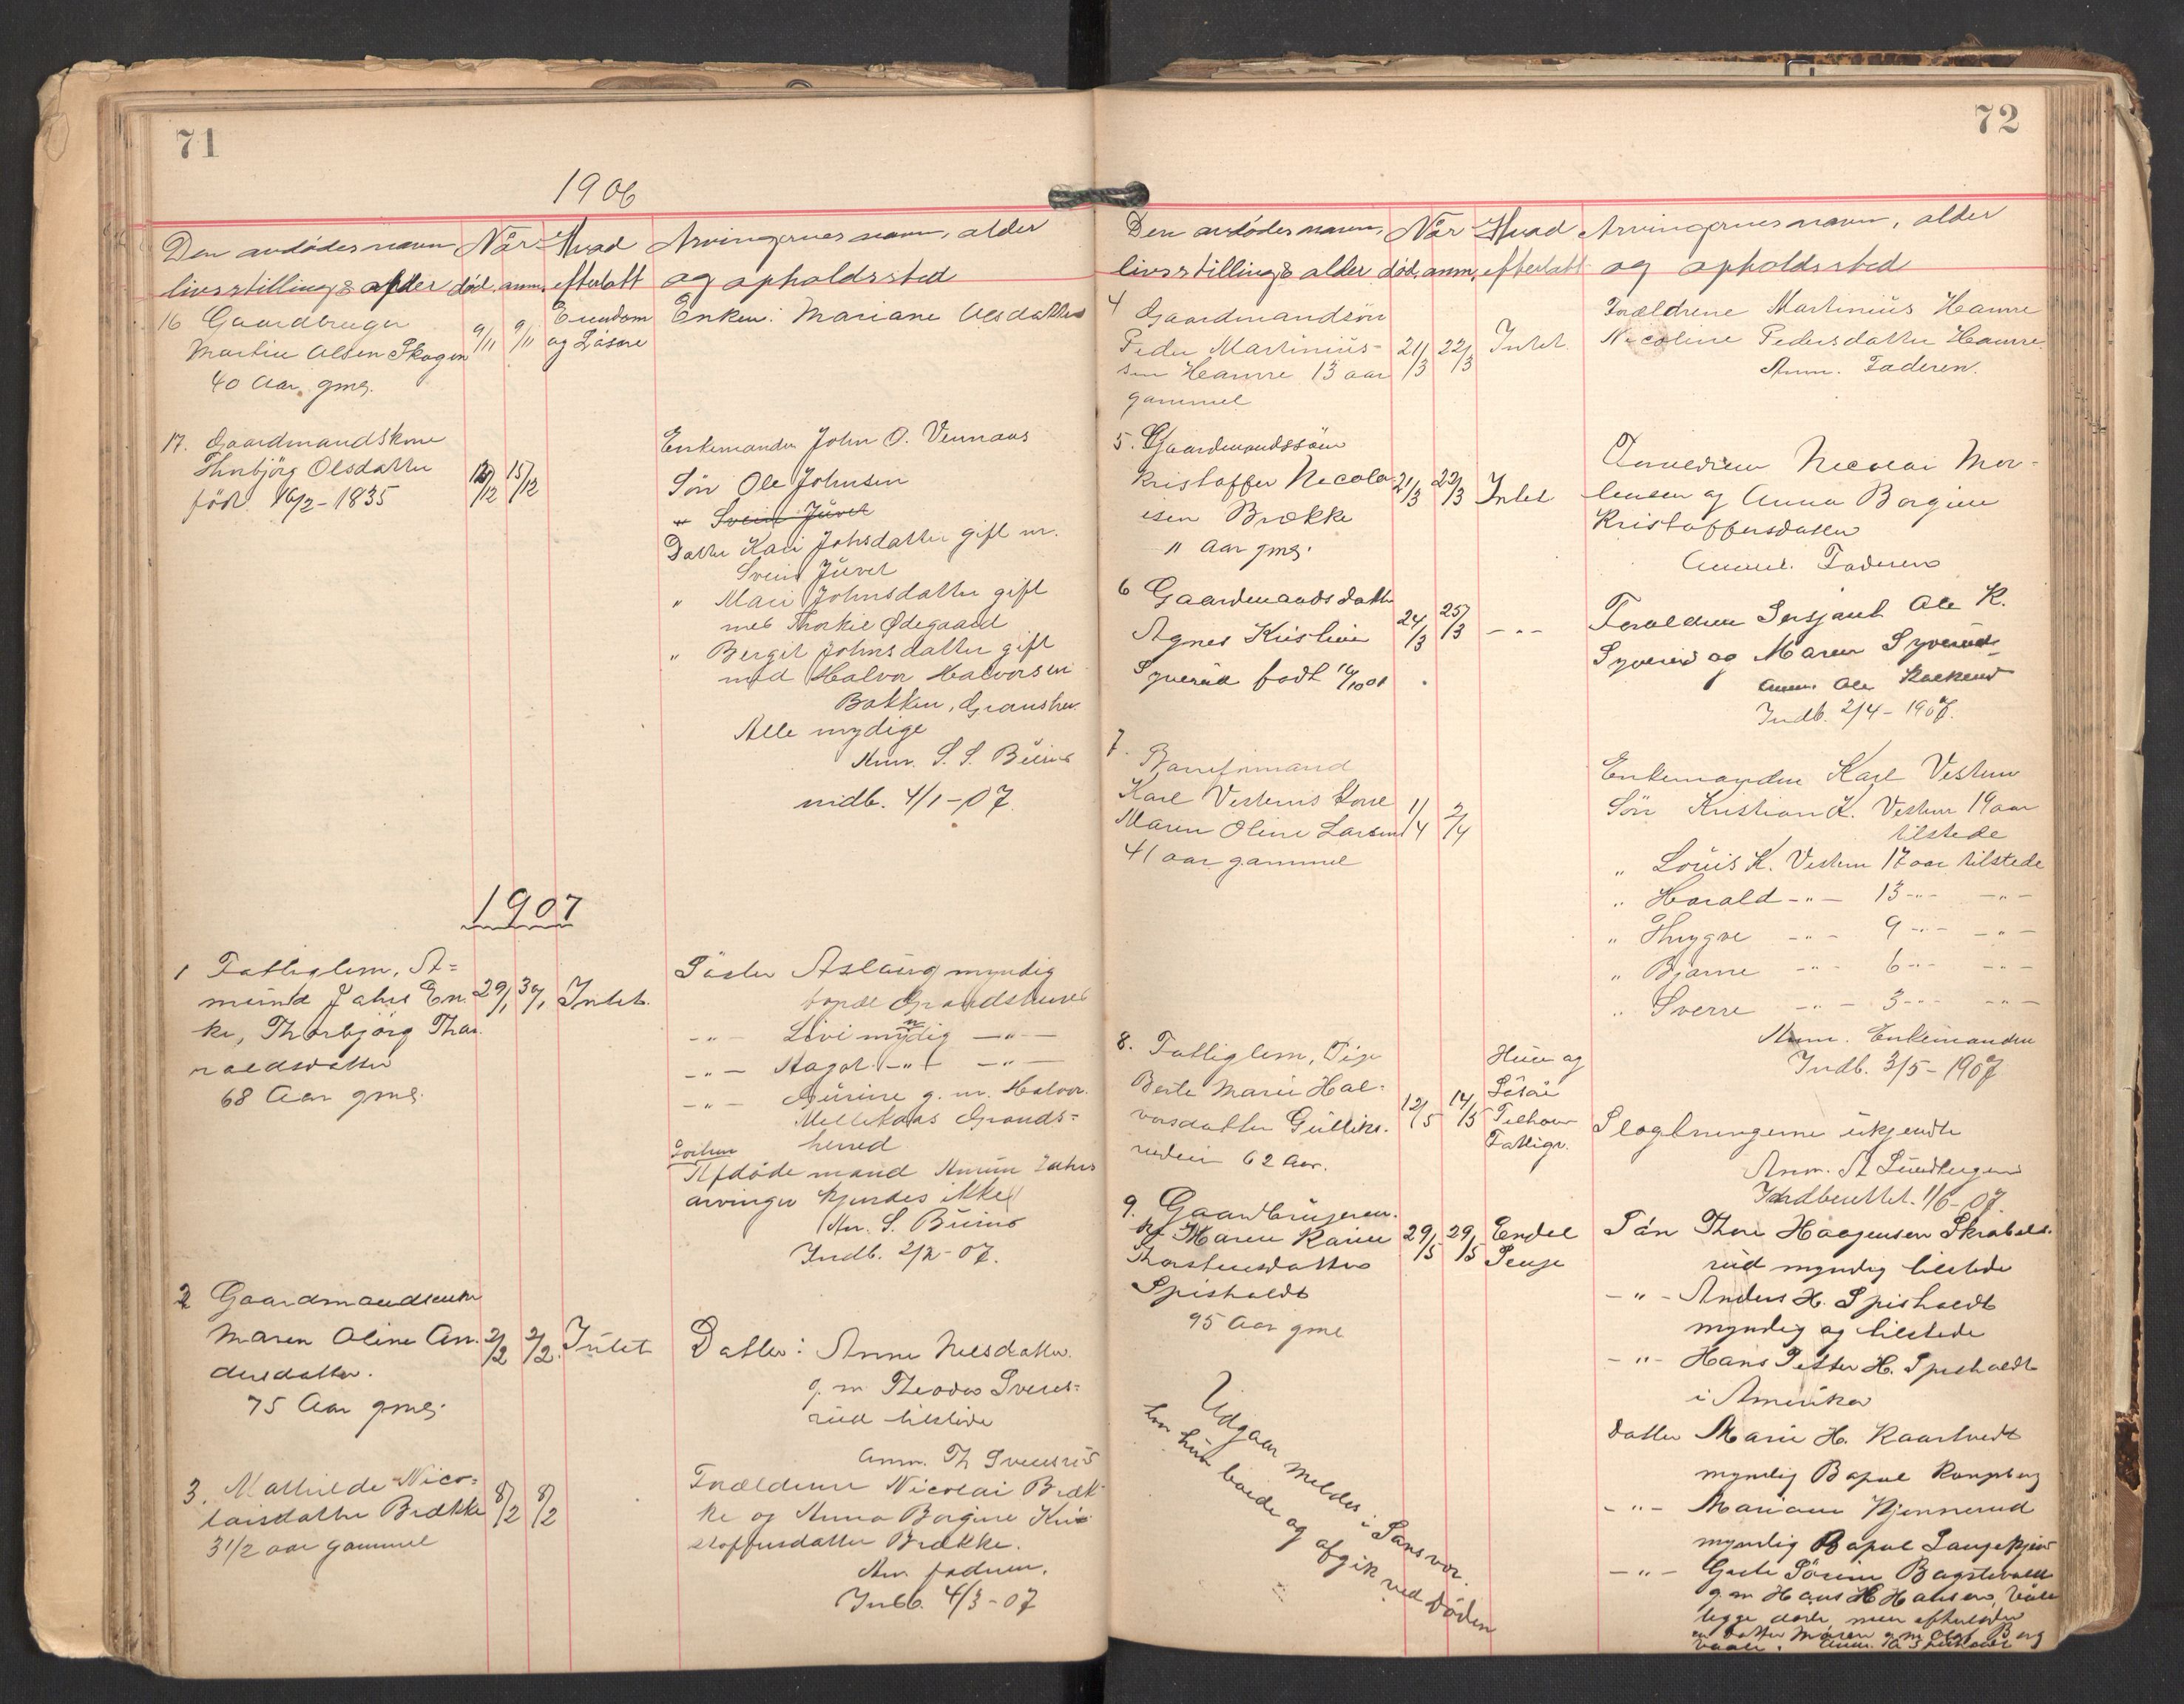 71
1906
Den avdødes navn Når Hvad Arvingernes navn, alder
livsstilling & alder død. anm. efterlatt og opholdssted
16 Gaardbruger
Martin Olsen Skogen
40 Aar gml.
9/11 9/11 Eiendom
og Løsøre
Enken: Mariane Olsdatter
17. Gaardmandskone
Thorbjörg Olsdatter
född 16/2-1835
15/12
Enkemanden John O. Vennaas
Sön Ole Johnsen
" Svein Juvet
Datter Kari Johsdatter gift m.
Svein Juvet
" Mari Johnsdatter gift
med Thorkil Ødegaard
" Bergit Johnsdatter gift
med Halvor Halvorsen
Bakken, Gransher.
Alle mydige
Anm. S. S. Buind
indb. 4/1-07.
1907
1 Fattiglem, A=
mund Jahrs En.
ke, Thorbjörg Tha.
raldsdatter
68 Aar gml.
29/1 30/1 Intet.
Söster Aslaug myndig
bopæl Grandsherred
-"- Livi myndig -"-
-"- Aagot -"- -"-
-"- Gurine g. m. Halvor.
Grands=
herred
Afdöde mand Amun Jahrs
arvinger kjendes ikke
An. S. Buind
Indb. 2/2-07.
2 Gaardmandsenke
Maren Oline An.
dersdatter.
75 Aar gml.
2/2 2/2. Intet
Datter: Anne Nelsdatter.
g. m Theodor Sveres=
rud tilstede
Anm. Th Sveresrud
3. Mathilde Nico=
laisdatter Brække
3 1/2 aar gammel
8/2 8/2
Forældrene Nicolai Bræk
ke og Anna Borgine Kri
stoffersdatter Brække.
An faderen.
Indb. 4/3-07
72
Den avdødes navn, Når Hvad Arvingernes navn, alder
livsstilling & alder død. anm. efterlatt og opholdssted
4 Gaardmandsön
Peder Martinius-
sen Hamre 13 aar
gammel
21/3 22/3 Intet.
Forældrene Martinius Hamre
Nicoline Pedersdatter Hamre
Anm. Faderen.
5. Gaardmandssön
Kristoffer Nicola
isen Brække
11 Aar gml.
21/3 22/3 Intet
Forældrene Nicolai Mor-
tensen og Anna Borgine
Kristoffersdatter
Anmel. Faderen
6 Gaardmandsdatter
Agnes Kristine
Syverud født
24/3 25/3 -"-
Forældrene Sersjant Ole K.
Syverud og Maren Syverud
Anm. Ole
Indb. 2/4-1907.
7.
Karl Vesterns Kone
Maren Oline Larsen
41 aar gammel
1/4 2/4
Enkemanden Karl Vestern
Sön Kristian K. Vestern 19 aar
tilstede
" Louis K. Vestern 17 aar tilstede
" Harald -"- 13 -"- -"-
" Thrygve -"- 9 -"- -"-
" Bjarne -"- 6 -"- -"-
" Sverre -"- 3 -"- -"-
Anm. Enkemanden
Indb. 3/5-1907
8. Fattiglem, Pige
Berte Marie Hal-
vorsdatter Gulliks.
rudeie 62 Aar.
12/5 14/5 Huus og
Løsöre
Tilhører
Fattigv.
Slagtningerne ukjendte
Anm. A
Indberettet. 1/6-07.
9. Gaardbrugeren.
ke Maren Karine
Thorstensdatter
Spisholdt
95 Aar gml
29/5 29/5 Endel
Penge
Sön Thor Haagensen Skrabels.
rud myndig tilstede
-"- Anders H. Spisholdt
myndig og tilstede
-"- Hans Petter H. Spisholdt
i Amerika
Datter Marie H. Kaarstvedt
myndig Bopæl Kongsberg
-"- Mariane Kjennerud
myndig Bopæl
-"- Sörine
g. m Hans H Halsen,
men efterlader
en Datter Maren g. m Olof Berg
Udgaar meldes i Sansvær.
hvor hun boede og afgik ved Döden